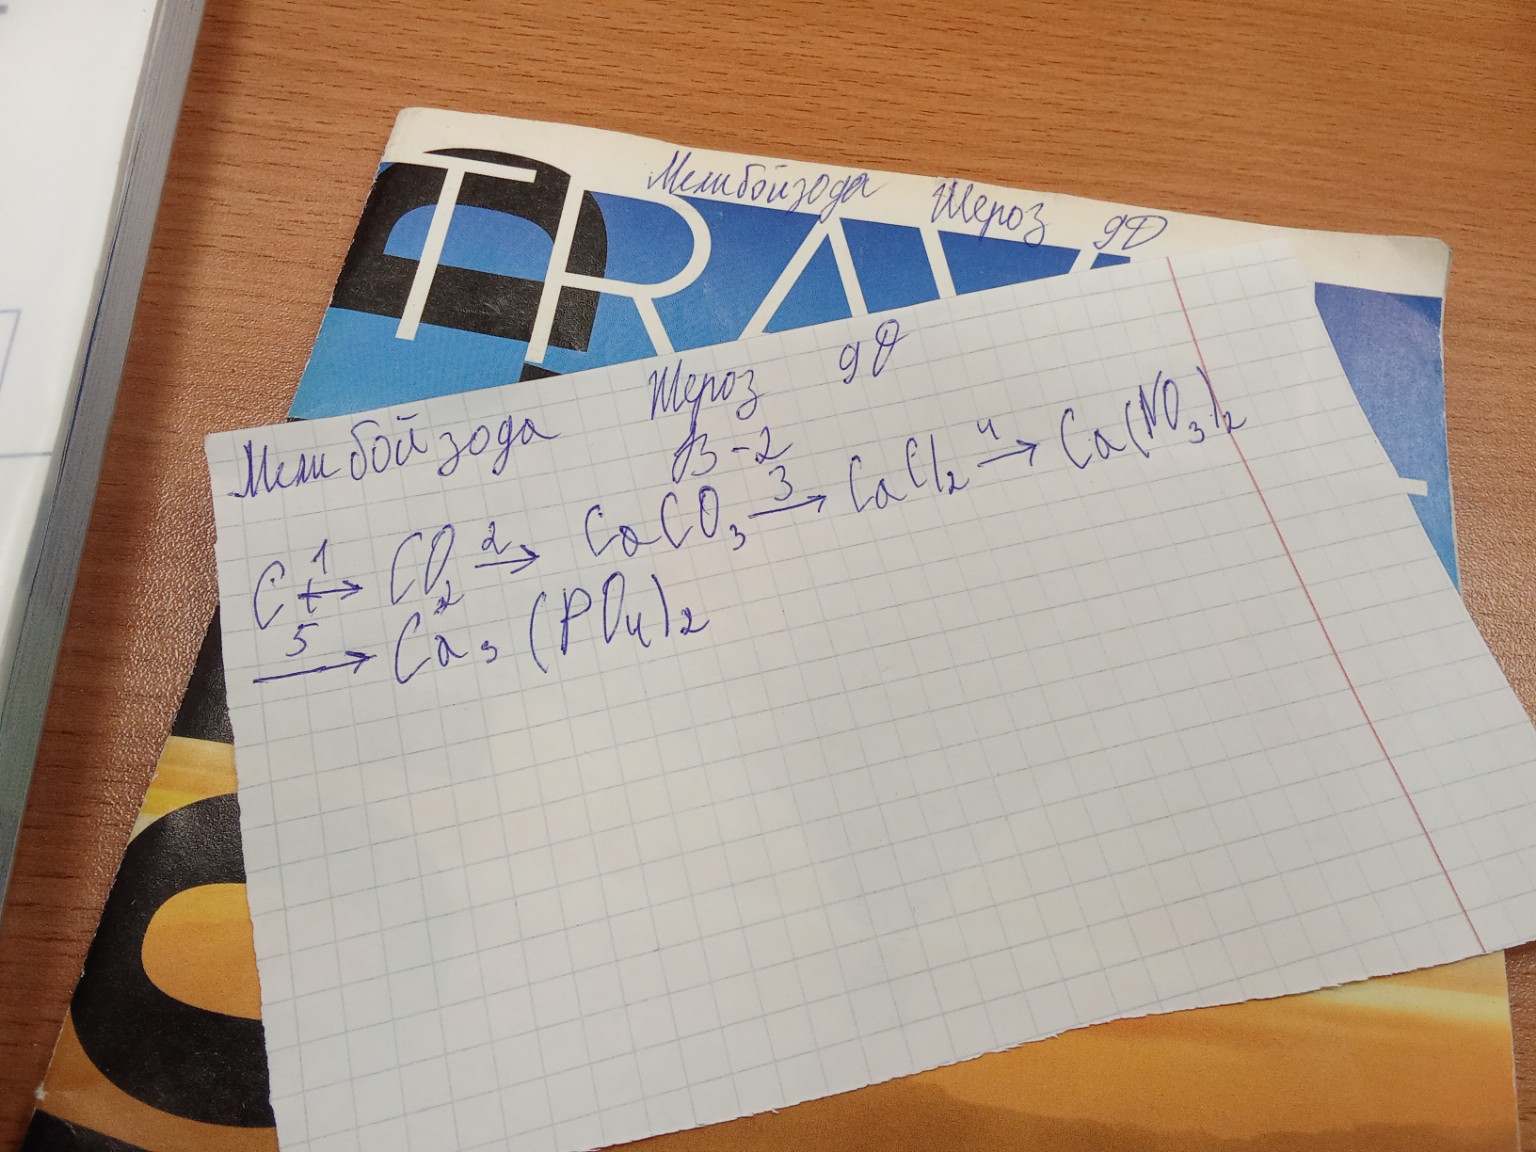 Мелибойзода Шероз 9Д
TRAV
Мелибойзода Шероз 9Д
В-2
C →1 CO2 →2 CaCO3 →3 CaCl2 →4 Ca(NO3)2
→5 Ca3(PO4)2